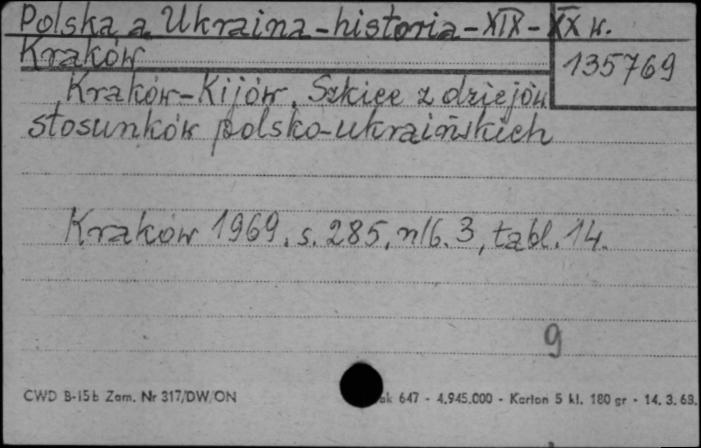 Polska a Ukraina - historia - XIX - XX w.
Kraków
135769
Kraków-Kijów. Szkice z dziejów
stosunków polsko-ukraińskich
Kraków 1969, s. 285, nlb. 3, tabl. 14.
9
CWD B-15b Zam. Nr 317/DW/ON
647 - 4.945.000 - Karton 5 kl. 180 gr - 14. 3. 68.